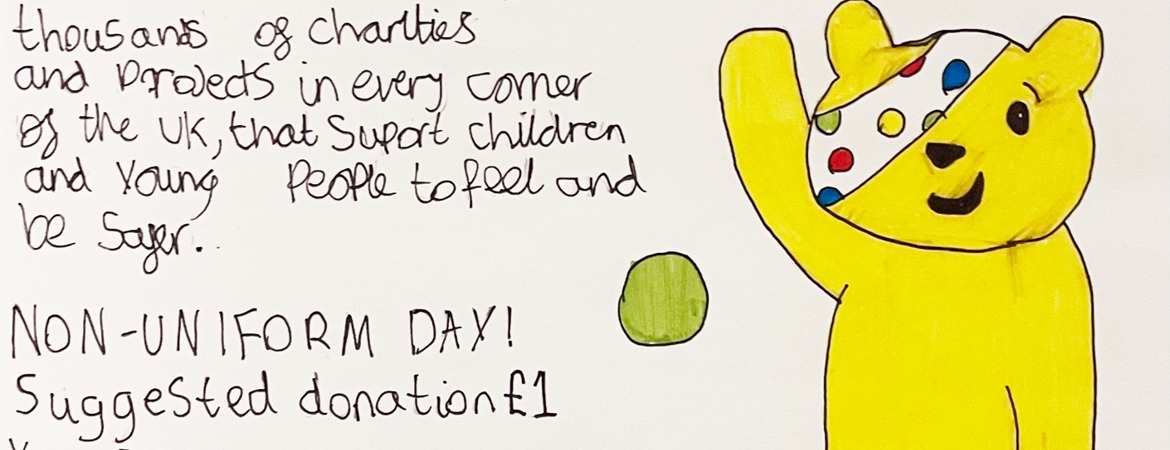 thousands of charities
and Projects in every corner
of the UK, that Suport children
and Young People to feel and
be Safer.
NON-UNIFORM DAY!
Suggested donation £1